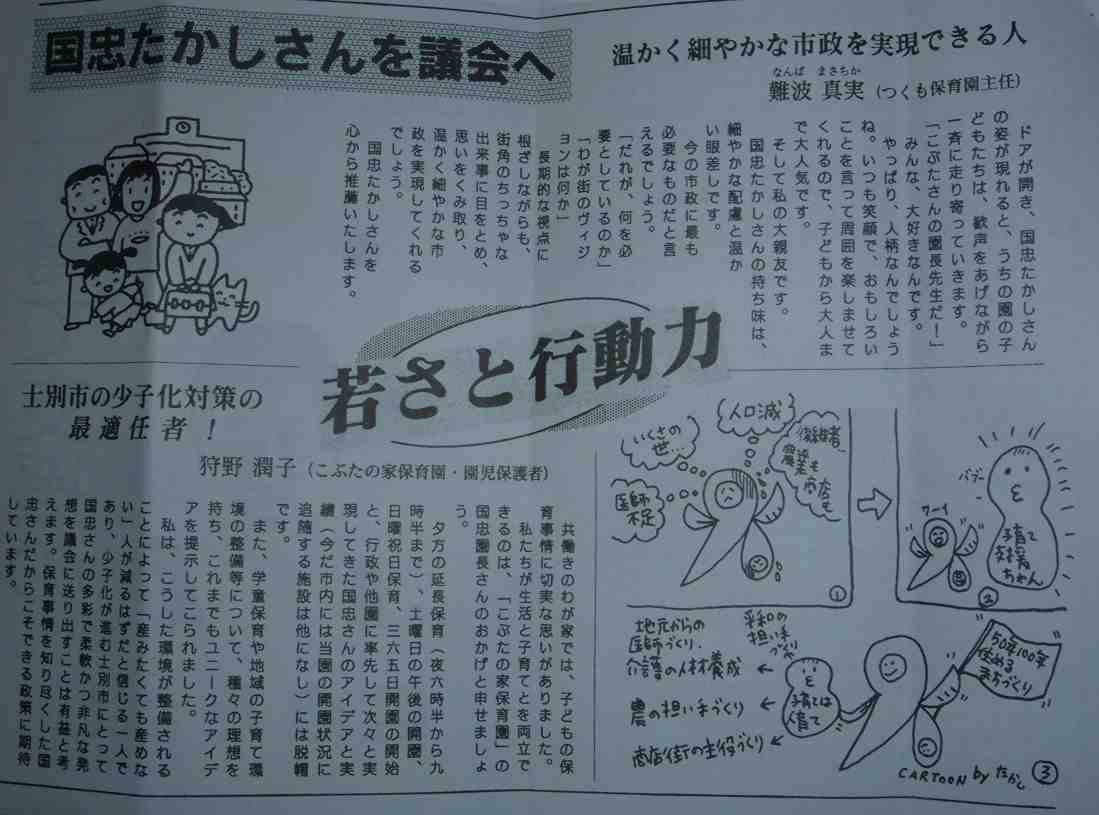 国忠たかしさんを議会へ
温かく細やかな市政を実現できる人
なんば まさちか
難波 真実 (つくも保育園主任)
ドアが開き、国忠たかしさん
の姿が現れると、うちの園の子
どもたちは、歓声をあげながら
一斉に走り寄っていきます。
「こぶたさんの園長先生だ!」
みんな、大好きなんです。
やっぱり、人柄なんでしょう
ね。いつも笑顔で、おもしろい
ことを言って周囲を楽しませて
くれるので、子どもから大人ま
で大人気です。
そして私の大親友です。
国忠たかしさんの持ち味は、
細やかな配慮と温か
い眼差しです。
今の市政に最も
必要なものだと言
えるでしょう。
「だれが、何を必
要としているのか」
「わが街のヴィジ
ョンは何か」
長期的な視点に
根ざしながらも、
街角のちっちゃな
出来事に目をとめ、
思いをくみ取り、
温かく細やかな市
政を実現してくれる
でしょう。
国忠たかしさんを
心から推薦いたします。
若さと行動力
士別市の少子化対策の
最適任者!
狩野 潤子 (こぶたの家保育園・園児保護者)
共働きのわが家では、子どもの保
育事情に切実な思いがありました。
私たちが生活と子育てとを両立で
きるのは、「こぶたの家保育園」の
国忠園長さんのおかげと申せましょ
う。
夕方の延長保育(夜六時半から九
時半まで)、土曜日の午後の開園、
日曜祝日保育、三六五日開園の開始
と、行政や他園に率先して次々と実
現してきた国忠さんのアイデアと実
績(今だ市内には当園の開園状況に
追随する施設は他になし)には脱帽
です。
また、学童保育や地域の子育て環
境の整備等について、種々の理想を
持ち、これまでもユニークなアイデ
アを提示してこられました。
私は、こうした環境が整備される
ことによって「産みたくても産めな
い」人が減るはずだと信じる一人で
あり、少子化が進む士別市にとって
国忠さんの多彩で柔軟かつ非凡な発
想を議会に送り出すことは有益と考
えます。保育事情を知り尽くした国
忠さんだからこそできる政策に期待
しています。
いくさの
世…
人口減
後継者
農業も
商店も
医師
不足
①
バブー
ワーイ
子育て
支援
ちゃん
②
地元からの
医師づくり
介護の人材養成
農の担い手づくり
商店街の主役づくり
平和の
担い手
づくり
子育ては
人育て
50年100年
住める
まちづくり
CARTOON by たかし
③